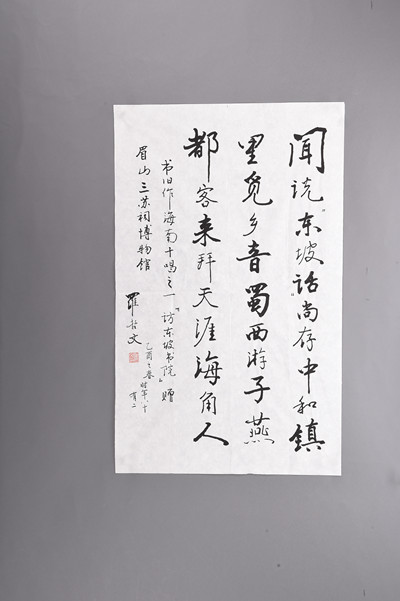 闻说“东坡话”尚存中和镇
里觅乡音蜀西游子燕
都客来拜天涯海角人
书旧作海南十唱之一“访东坡书院”赠
眉山三苏祠博物馆
罗哲文
乙酉之春时年八十
有二